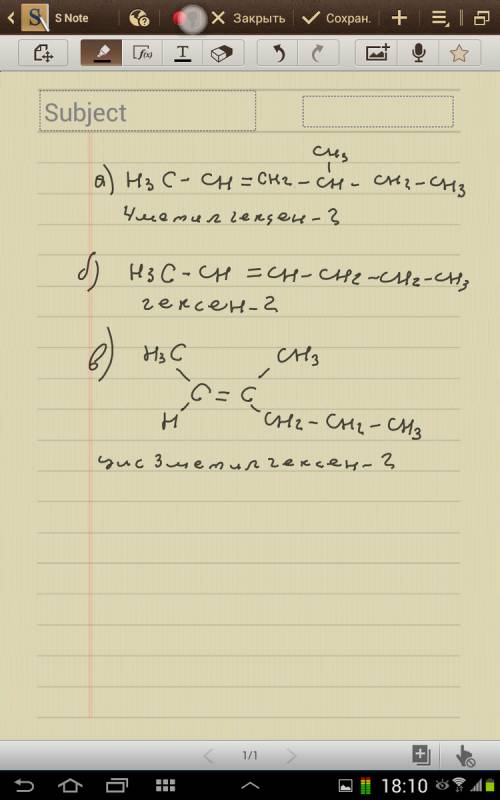 S Note
Закрыть
Сохран.
f(x)
T
Subject
CH3
а) H3C - CH = CH2 - CH - CH2 - CH3
4метилгексен-2
б) H3C - CH = CH - CH2 - CH2 - CH3
гексен-2
в) H3C CH3
C = C
H CH2 - CH2 - CH3
цис 3метилгексен-2
1/1
18:10